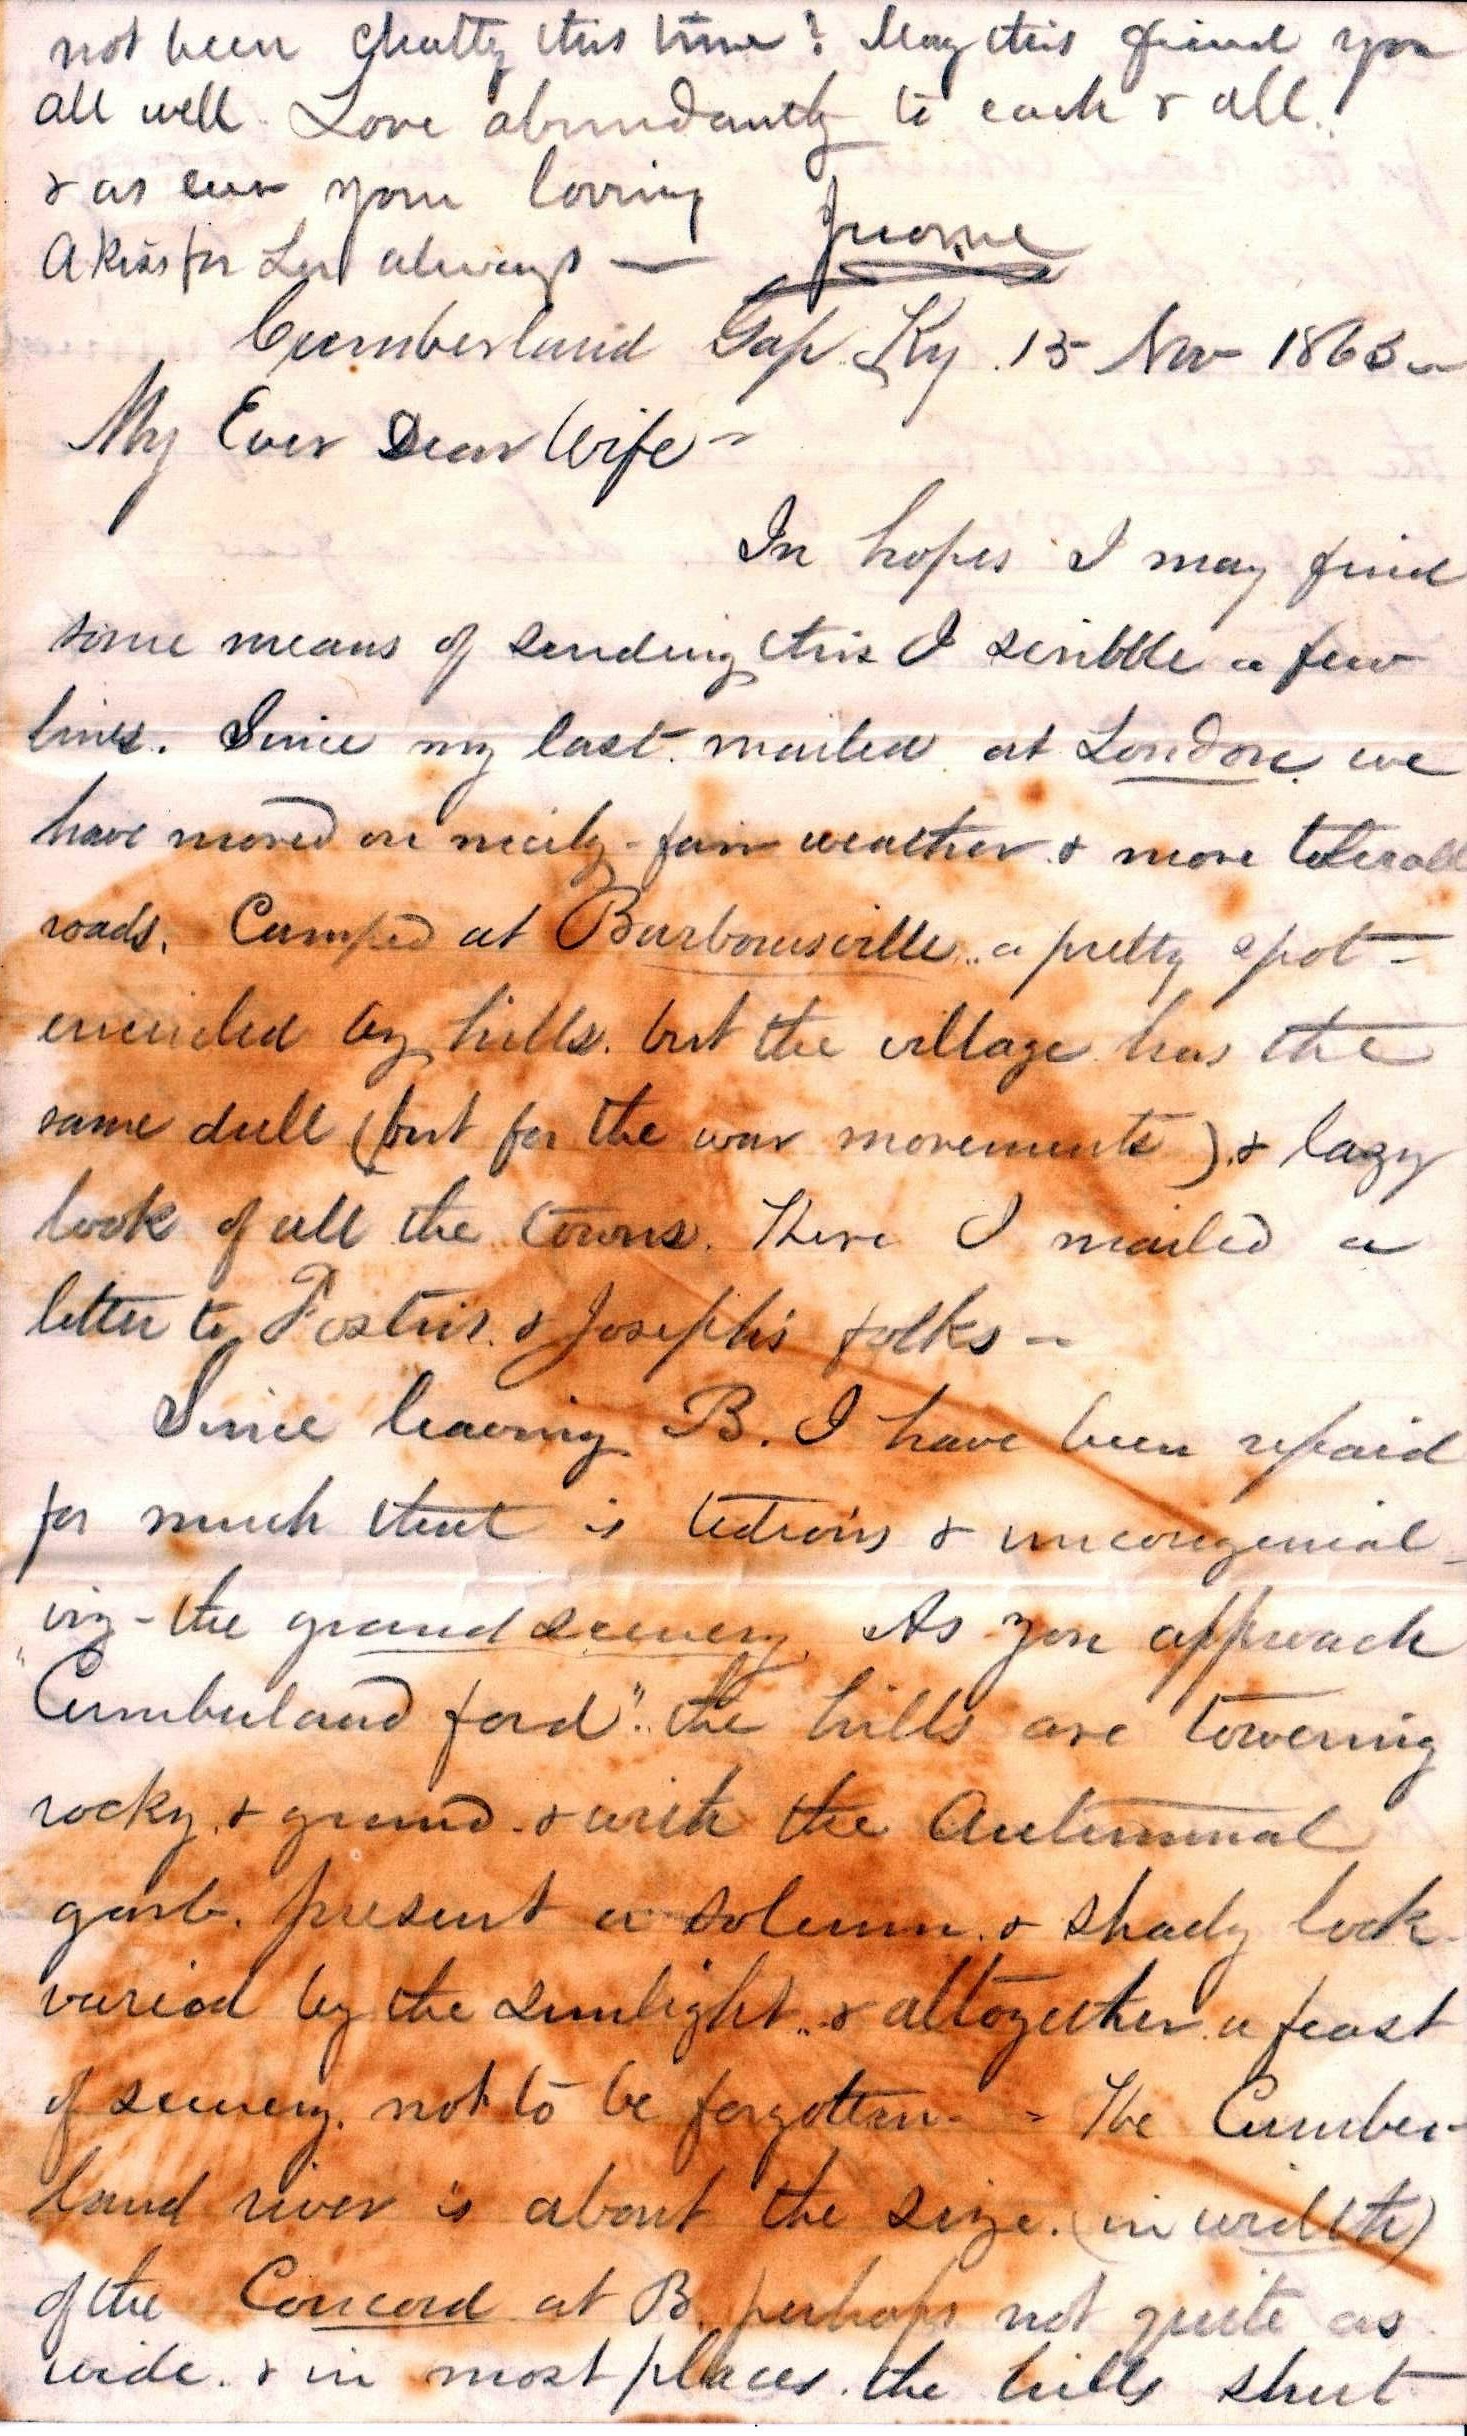 not been chatty this time? May this find you
all well. Love abundantly to each & all.
& as ever your loving
Jerome
A Kiss for Lu always —
Cumberland Gap. Ky. 15 Nov 1863 —
My Ever Dear Wife —
In hopes I may find
some means of sending this I scribble a few
lines. Since my last mailed at London we
have moved on nicely - fair weather & more tolerabl
roads. Camped at Barboursville.. a pretty spot -
encircled by hills. but the village has the
same dull (but for the war movements) & lazy
look of all the towns. There I mailed a
letter to Fosters & Joseph's folks —
Since leaving B. I have been repaid
for much that is tedious & uncongenial -
viz - the grand scenery As you approach
"Cumberland ford".. the hills are towering
rocky & grand - & with the Autumnal
garb. present a solemn & shady look -
varied by the sunlight.. & altogether a feast
of scenery. not to be forgotten - - The Cumber-
land river is about the size. (in width)
of the Concord at B. perhaps not quite as
wide. & in most places. the hills shut